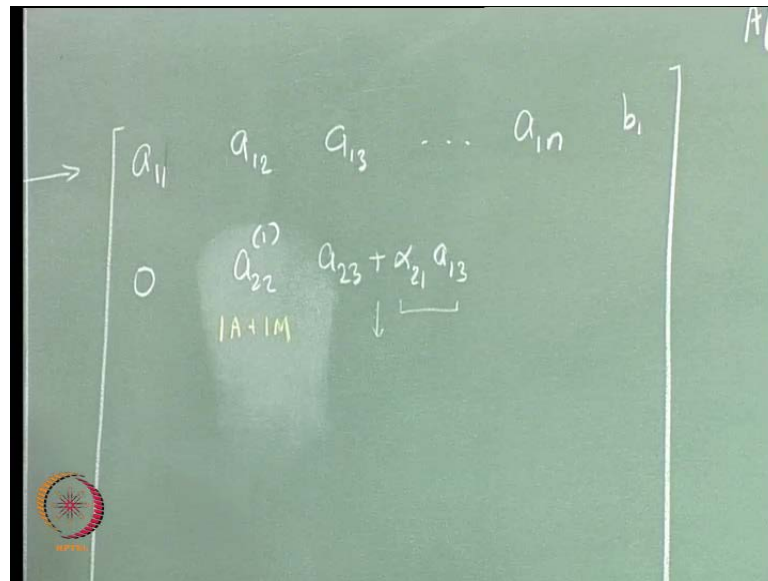 A
→ a₁₁ a₁₂ a₁₃ ... a₁ₙ b₁
0 a₂₂⁽¹⁾ a₂₃ + α₂₁ a₁₃
1A + 1M ↓
NPTEL